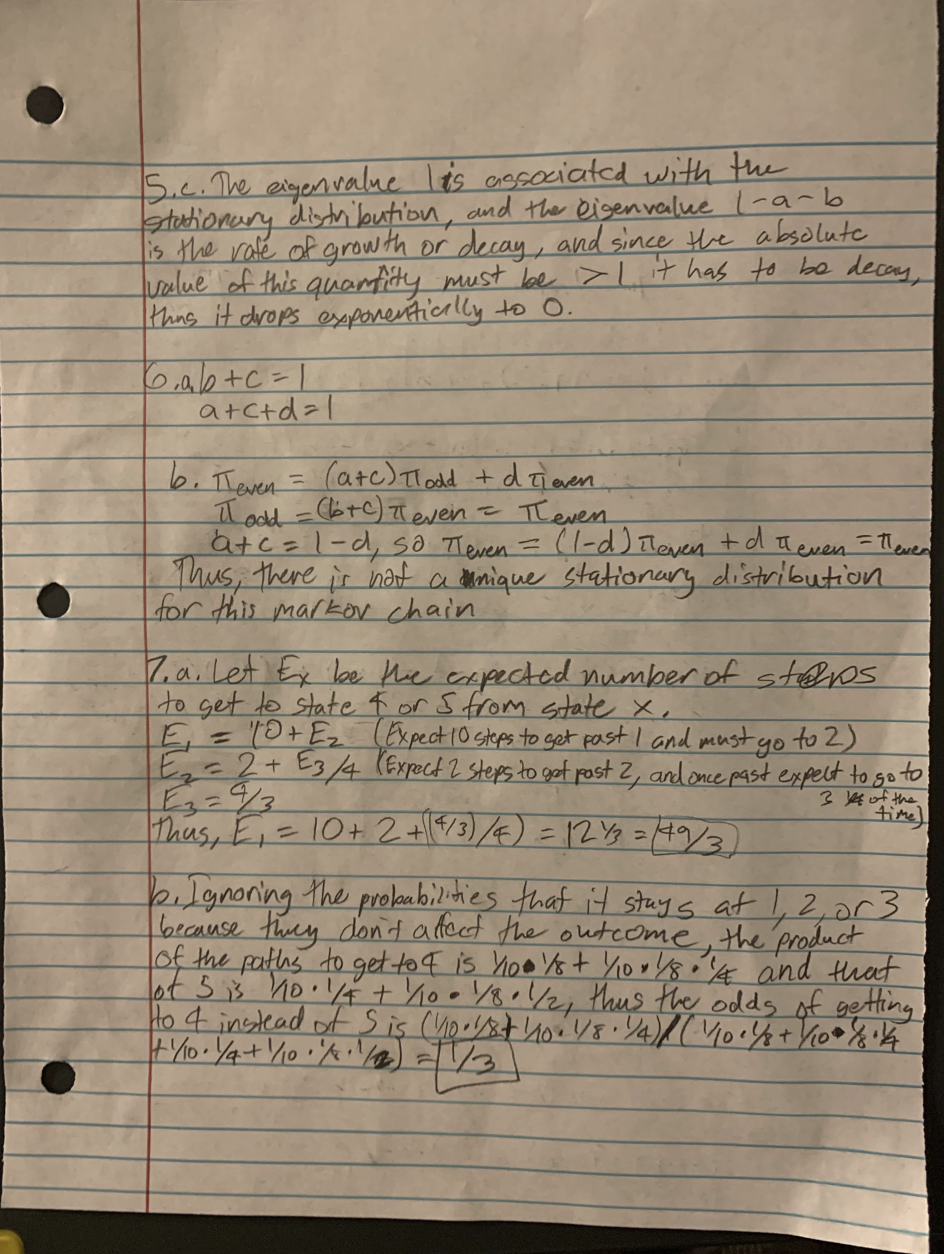 5.c. The eigenvalue 1 is associated with the
stationary distribution, and the eigenvalue 1-a-b
is the rate of growth or decay, and since the absolute
value of this quantity must be >1 it has to be decay,
thus it drops exponentically to 0.
6.a. b+c=1
a+c+d=1
b. π even = (a+c)π odd + d π even
π odd = (b+c)π even = π even
a+c = 1-d, so π even = (1-d)π even + d π even = π even
Thus, there is not a unique stationary distribution
for this markov chain
7.a. Let Ex be the expected number of steps
to get to state 4 or 5 from state x.
E₁ = 10+E₂ (Expect 10 steps to get past 1 and must go to 2)
E₂ = 2 + E₃/4 (Expect 2 steps to get past 2, and once past expect to go to
3 1/4 of the time)
E₃ = 4/3
Thus, E₁ = 10+2+((4/3)/4) = 12 1/3 = 49/3
b. Ignoring the probabilities that it stays at 1, 2, or 3
because they don't affect the outcome, the product
of the paths to get to 4 is 1/10·1/8 + 1/10·1/8·1/4 and that
of 5 is 1/10·1/4 + 1/10·1/8·1/2, thus the odds of getting
to 4 instead of 5 is (1/10·1/8+1/10·1/8·1/4)/(1/10·1/8+1/10·1/8·1/4
+1/10·1/4+1/10·1/8·1/2) = 1/3